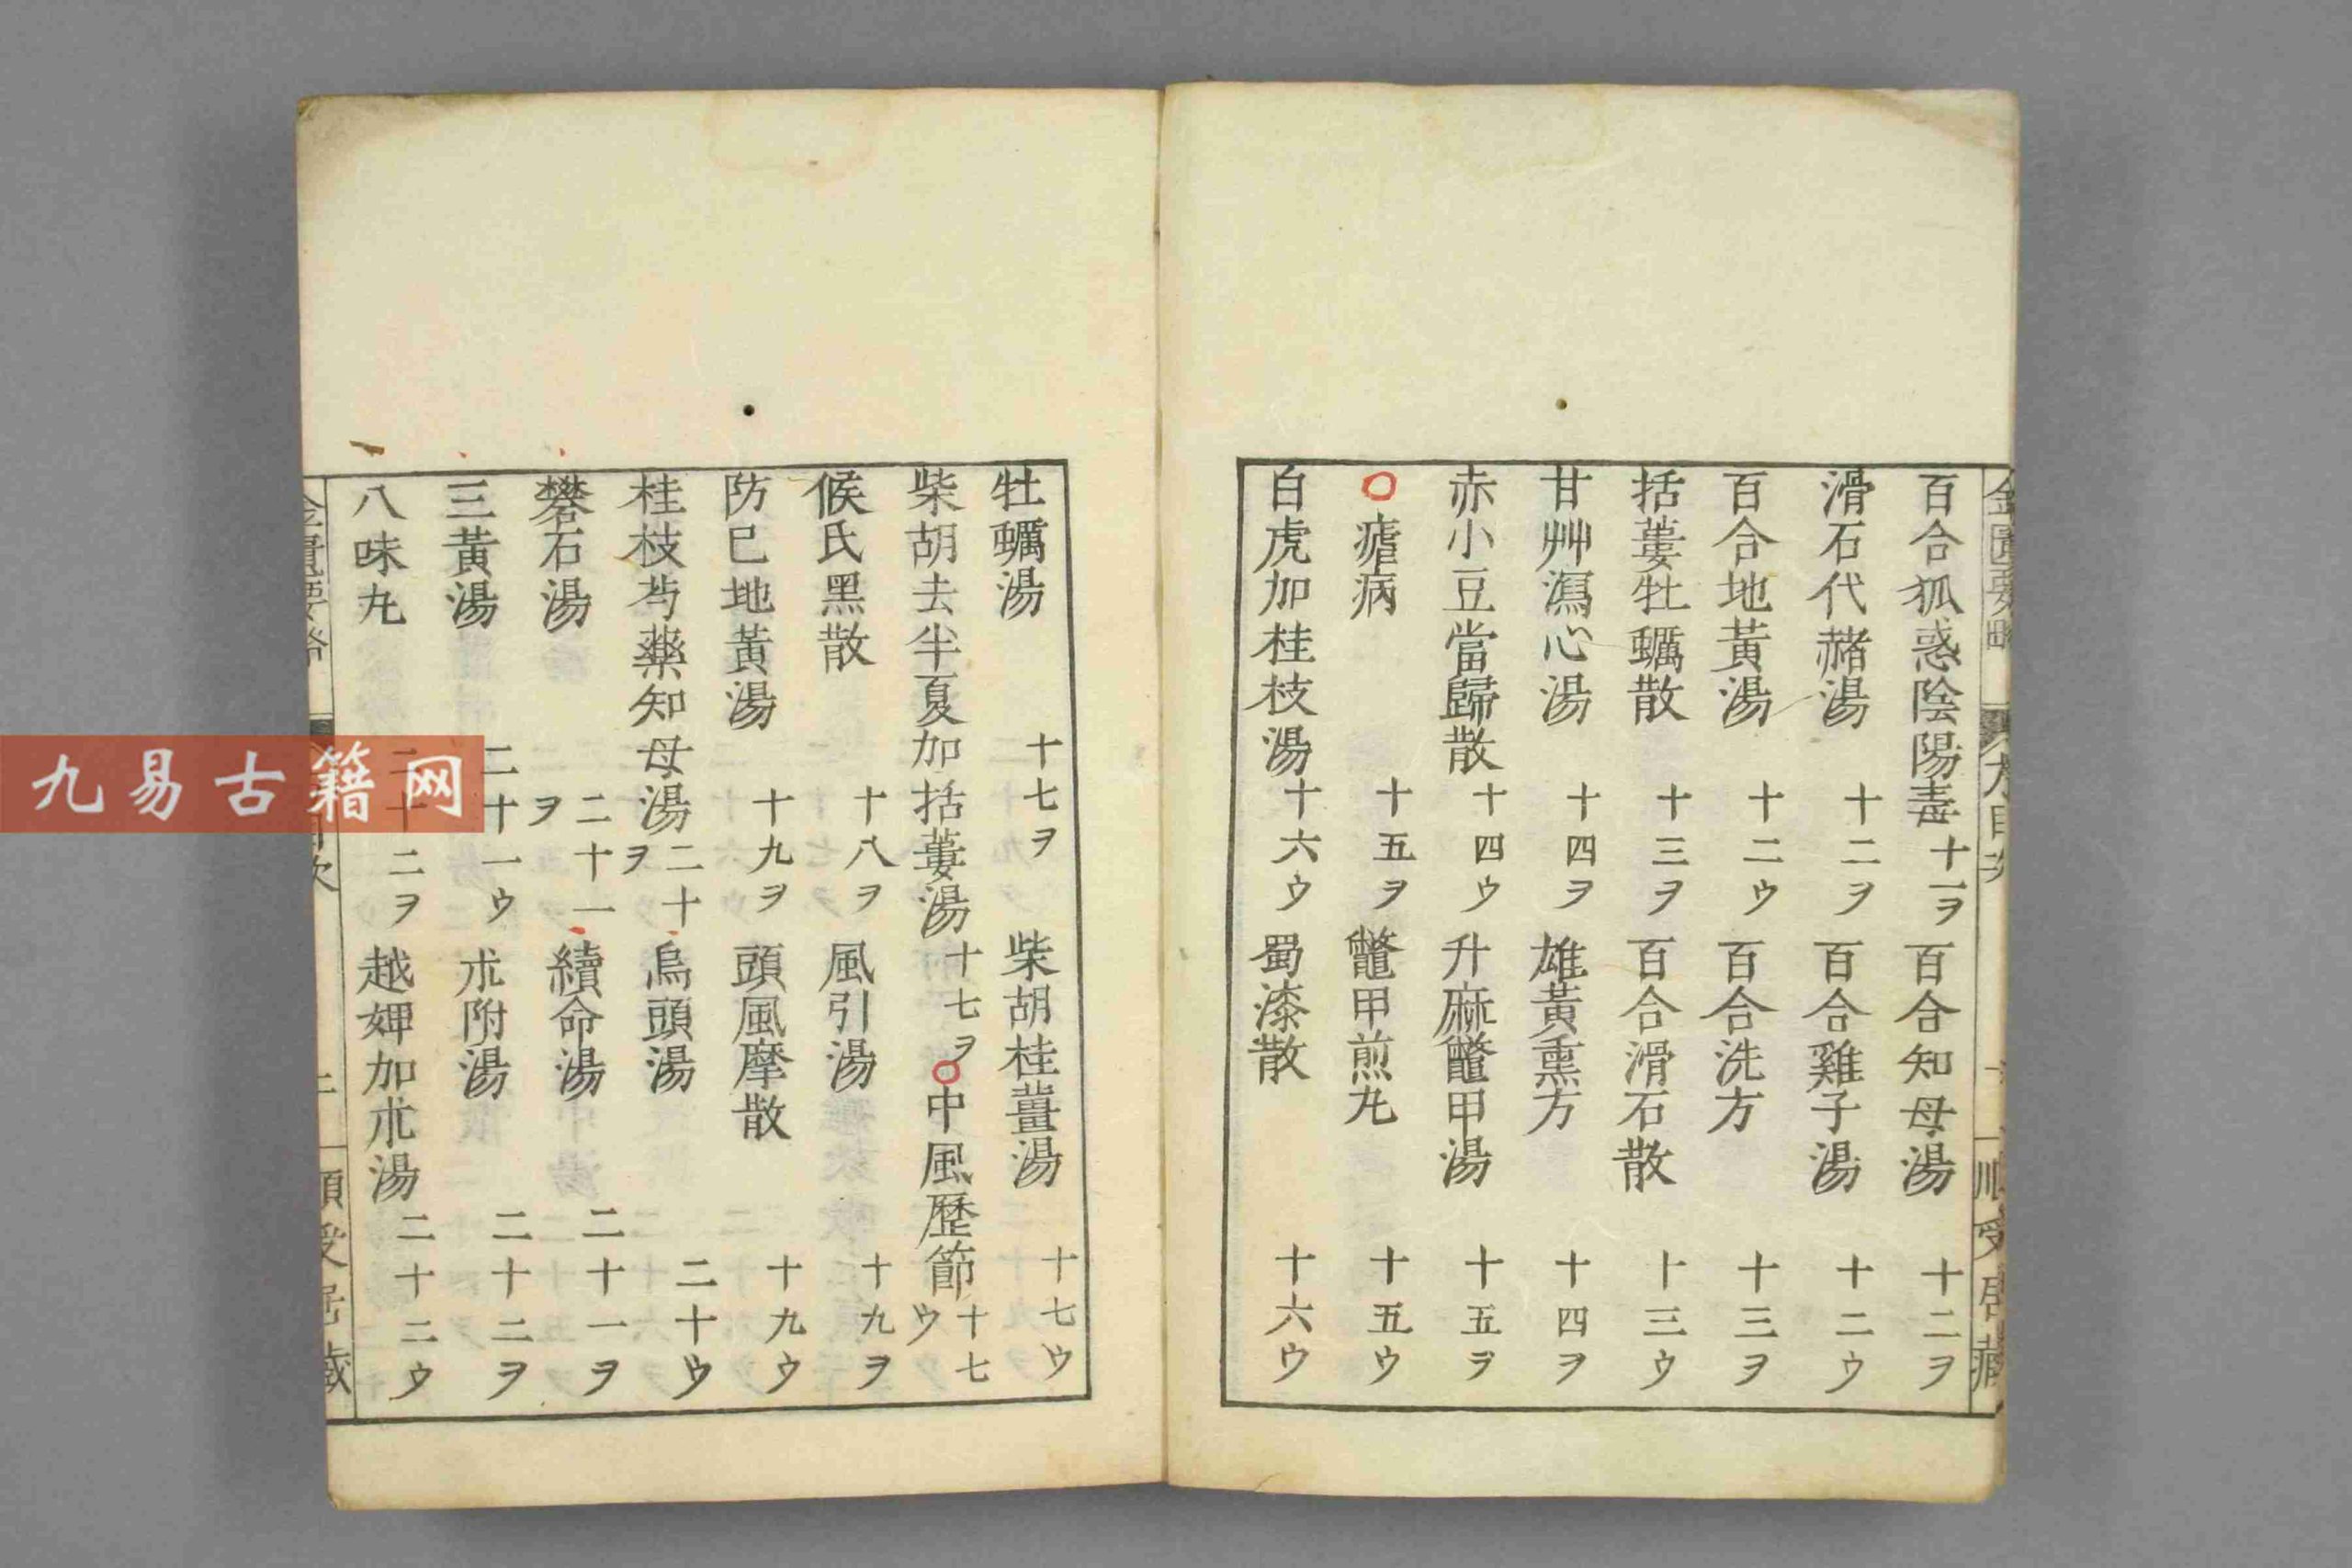 百合狐惑陰陽毒 十一ヲ 百合知母湯 十二ヲ
滑石代赭湯 十二ヲ 百合雞子湯 十二ウ
百合地黃湯 十二ウ 百合洗方 十三ヲ
括蔞牡蠣散 十三ヲ 百合滑石散 十三ウ
甘艸瀉心湯 十四ヲ 雄黃熏方 十四ヲ
赤小豆當歸散 十四ウ 升麻鼈甲湯 十五ヲ
○瘧病 十五ヲ 鼈甲煎丸 十五ウ
白虎加桂枝湯 十六ウ 蜀漆散 十六ウ
牡蠣湯 十七ヲ 柴胡桂薑湯 十七ウ
柴胡去半夏加括蔞湯 十七ヲ ○中風歷節 十七ウ
候氏黑散 十八ヲ 風引湯 十九ヲ
防已地黃湯 十九ヲ 頭風摩散 十九ウ
桂枝芍藥知母湯 二十ヲ 烏頭湯 二十ウ
礬石湯 二十一ヲ 續命湯 二十一ヲ
三黃湯 二十一ウ 朮附湯 二十二ヲ
八味丸 二十二ヲ 越婢加朮湯 二十二ウ
九易古籍网